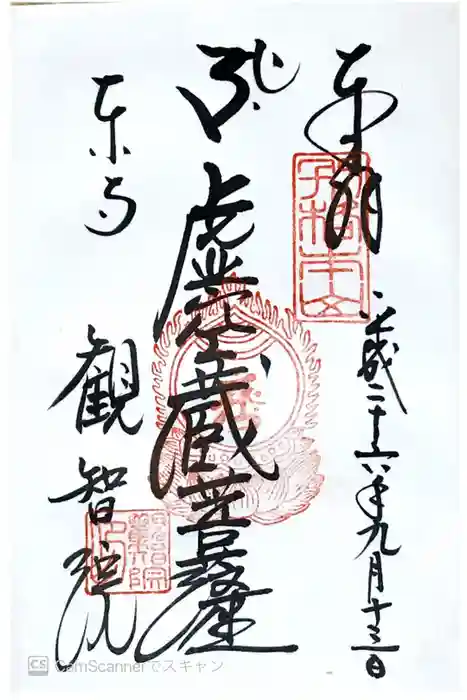 奉拝
平成二十六年九月十三日
虚空蔵菩薩
東寺
観智院
CS CamScannerでスキャン